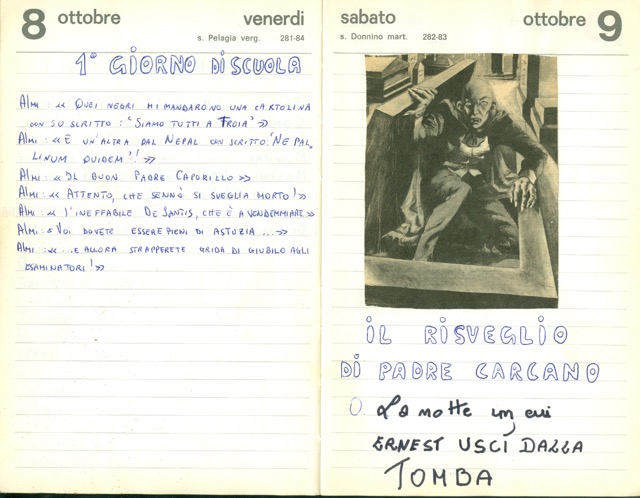 8 ottobre venerdi
s. Pelagia verg. 281-84
1° GIORNO DI SCUOLA
Almi: « QUEI NEGRI MI MANDARONO UNA CARTOLINA
CON SU SCRITTO: 'SIAMO TUTTI A TROIA' »
Almi: « E UN'ALTRA DAL NEPAL CON SCRITTO: 'NEPAL
LINUM QUIDEM'! »
Almi: « IL BUON PADRE CAPORILLO »
Almi: « ATTENTO, CHE SENNÒ SI SVEGLIA MORTO! »
Almi: « L'INEFFABILE DE SANTIS, CHE È A VENDEMMIARE »
Almi: « VOI DOVETE ESSERE PIENI DI ASTUZIA ... »
Almi: « ...E ALLORA STRAPPERETE GRIDA DI GIUBILO AGLI
ESAMINATORI! »
sabato ottobre 9
s. Donnino mart. 282-83
IL RISVEGLIO
DI PADRE CARCANO
O. La notte in cui
ERNEST USCÌ DALLA
TOMBA